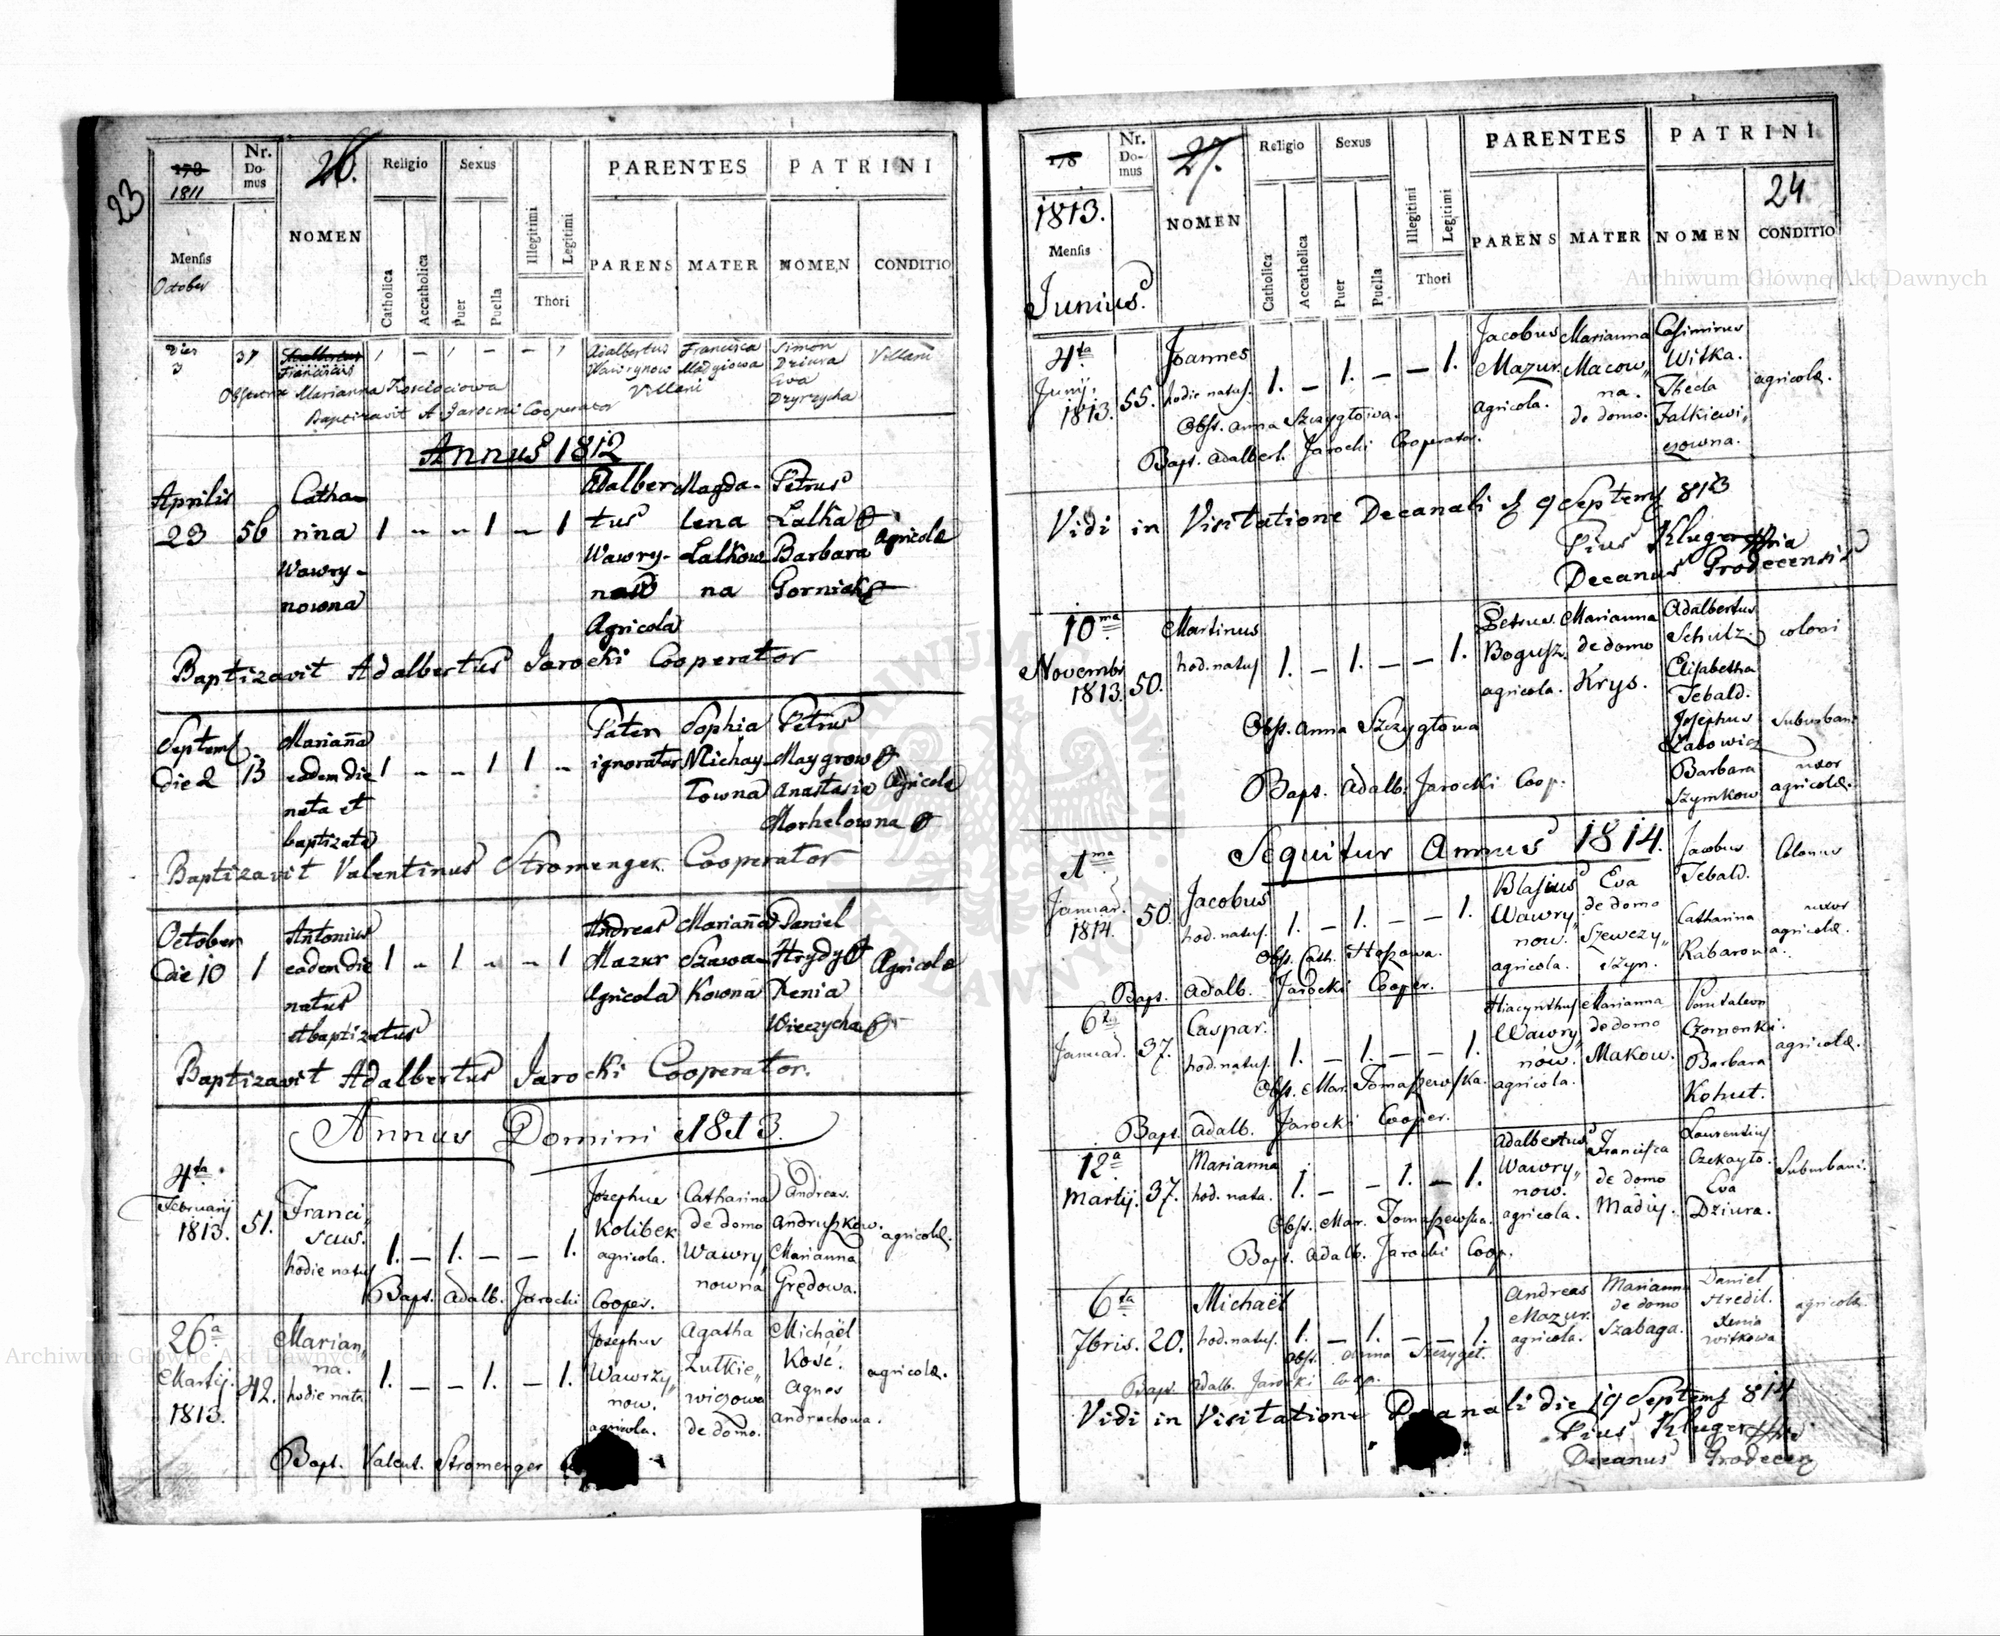 23
178
1811
Nr. Domus
26.
NOMEN
Religio
Sexus
PARENTES
PATRINI
Catholica
Accatholica
Puer
Puella
Illegitimi
Legitimi
Thori
PARENS
MATER
NOMEN
CONDITIO
Mensis
October
Dies 3
37
Franciscus
1 – 1 – – 1
Adalbertus Wawrynow
Francisca Madyiowa
Villani
Simon Dziura
Eva
Villani
Obstetrix Marianna
Baptizavit A Jarocki Cooperator
Annus 1812
Aprilis 23
56
Catharina Wawrynowna
1 – – 1 – 1
Adalbertus
Agricola
Magdalena Lalkowna
Petrus Lalka
Barbara
Agricolæ
Baptizavit Adalbertus Jarocki Cooperator
Septem
die 2
13
Marianna eadem die nata et baptizata
1 – – 1 1 –
Pater ignoratur
Sophia
Petrus Maygrow
Anastasia Morhelowna
Agricolæ
Baptizavit Valentinus Stromenger Cooperator
October
die 10
1
Antonius eadem die natus et baptizatus
1 – 1 – – 1
Andreas Mazur Agricola
Marianna Szawakowna
Daniel Hrydy
Xenia
Agricolæ
Baptizavit Adalbertus Jarocki Cooperator.
Annus Domini 1813.
4ta
Februarij
1813.
51.
Franciscus.
hodie natus
1. – 1. – – 1.
Josephus Kolibek agricola.
Catharina de domo Wawrynowna
Andreas Andruszkow.
Marianna Grędowa.
agricolæ.
Bapt. Adalb. Jarocki Cooper.
26a
Martij.
1813.
42.
Marianna.
hodie nata
1. – – 1. – 1.
Josephus Wawrzynow. agricola.
Agatha de domo.
Michaël Kość.
Agnes Andruchowa.
agricolæ.
Bapt. Valent. Stromenger
178
1813.
Nr. Domus
27.
NOMEN
Religio
Sexus
PARENTES
PATRINI
24
Catholica
Accatholica
Puer
Puella
Illegitimi
Legitimi
Thori
PARENS
MATER
NOMEN
CONDITIO
Mensis
Junius.
4ta
Junij.
1813.
55.
Joannes
hodie natus.
1. – 1. – – 1.
Jacobus Mazur. agricola.
Marianna Macowna. de domo.
Casimirus Witka.
Theda Falkiewiczowna.
agricolæ.
Obst. Anna Szczygłowa.
Bapt. Adalbert. Jarocki Cooperator.
Vidi in Visitatione Decanali 9 Septemb 813
Pius Kluger
Decanus Grodecensis
10ma
Novembr
1813.
50.
Martinus
hod. natus
1. – 1. – – 1.
Petrus Bogusz. agricola.
Marianna de domo Krys.
Adalbertus Schultz
Elisabetha Tebald.
coloni
Josephus
Barbara Szymkow
Suburban
uxor agricolæ.
Obst. Anna Szczygłowa
Bapt. Adalb. Jarocki Coop.
Sequitur Annus 1814.
1ma
Januar.
1814.
50.
Jacobus
hod. natus.
1. – 1. – – 1.
Blasius Wawrynow. agricola.
Eva de domo Szewczyszyn.
Jacobus Tebald.
Colonus
Catharina Rabarowa.
uxor agricolæ.
Obst. Cath. Hopowa.
Bapt. Adalb. Jarocki Cooper.
6ta
Januar.
37.
Caspar.
hod. natus.
1. – 1. – – 1.
Hiacynthus Wawrynow. agricola.
Marianna de domo Makow.
Pantaleon
Barbara Kohut.
agricolæ.
Obst. Mar. Tomaszewska.
Bapt. Adalb. Jarocki Cooper.
12a
Martij.
37.
Marianna
hod. nata.
1. – – 1. – 1.
Adalbertus Wawrynow. agricola.
Francisca de domo Madiy.
Laurentius Czekayło.
Eva Dziura.
Suburbani.
Obst. Mar. Tomaszewska.
Bapt. Adalb. Jarocki Coop.
6ta
7bris.
20.
Michaël
hod. natus.
1. – 1. – – 1.
Andreas Mazur. agricola.
Marianna de domo Szabaga.
Daniel Hredil.
Xenia Witkowa
agricolæ.
Obst. Anna Szczygeł.
Bapt. Adalb. Jarocki Coop.
Vidi in Visitatione Decanali die 19 Septemb 814
Pius Kluger
Decanus Grodecen
Archiwum Główne Akt Dawnych
Archiwum Główne Akt Dawnych